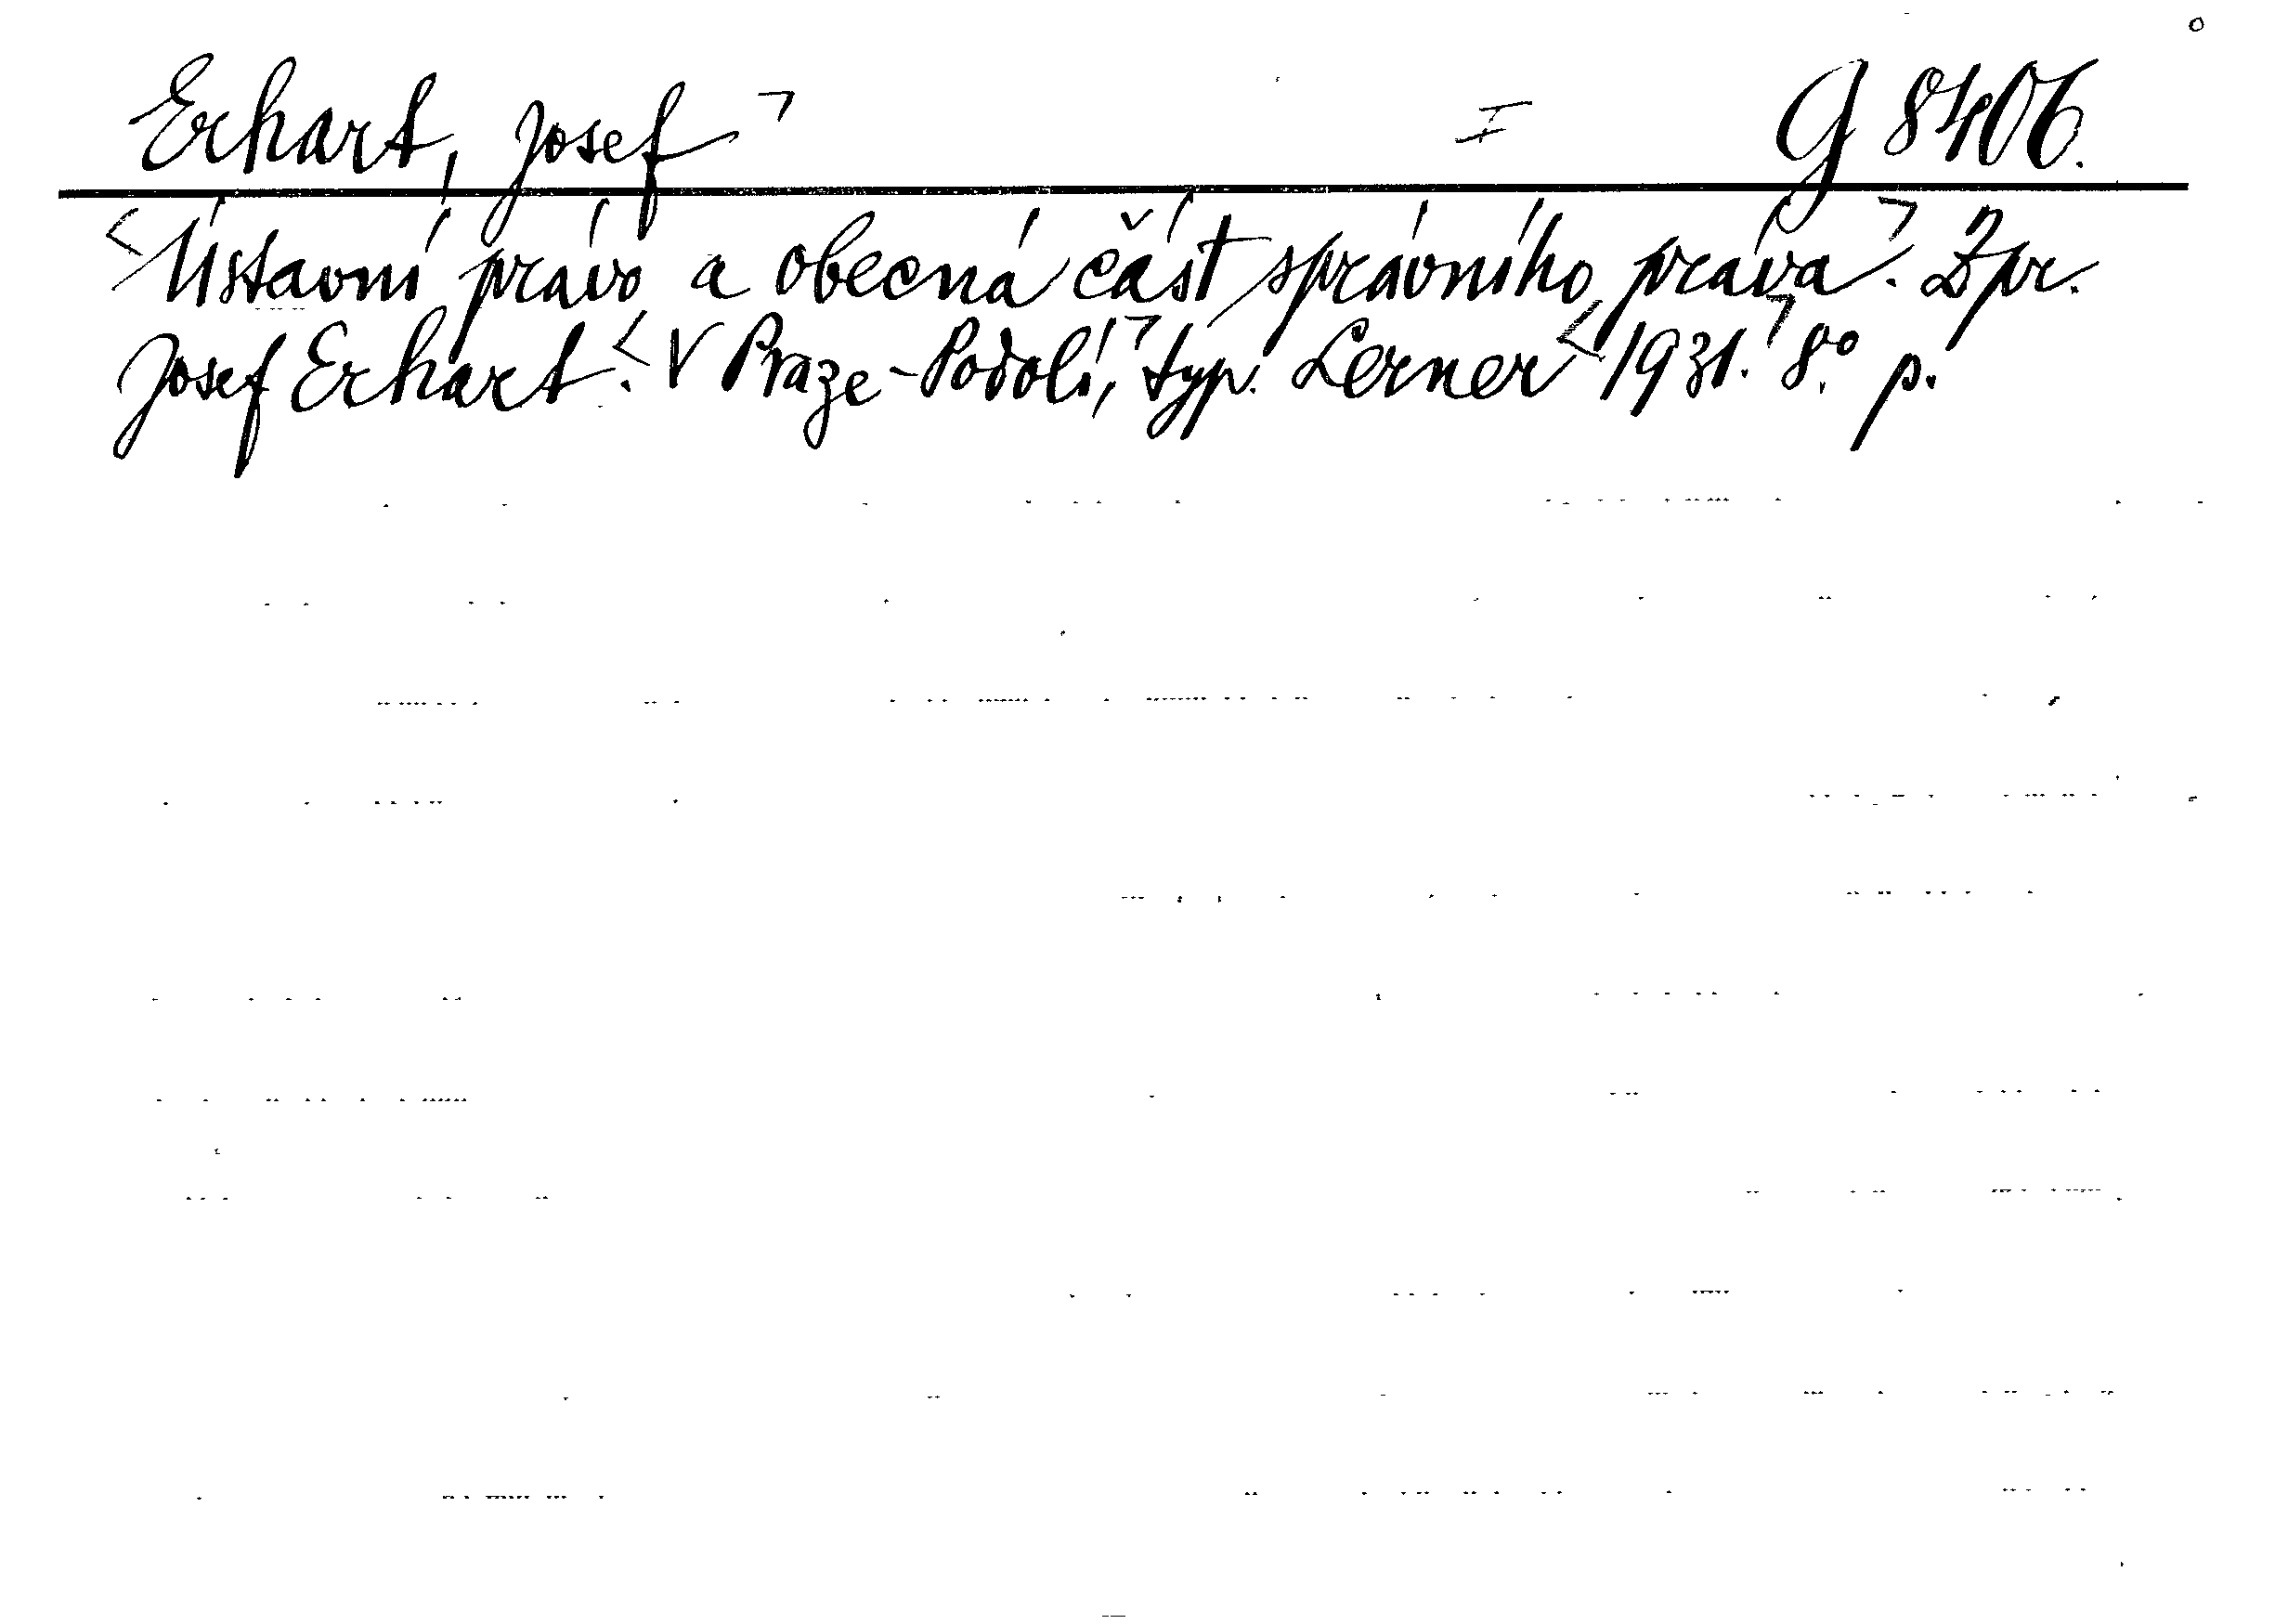 Erhart, Josef ¬ I G 8406.
<Ústavní právo a obecná část správního práva¬. Zpr.
Josef Erhart.< V Praze-Podolí,¬ typ. Lerner <1931.¬ 8.° p.